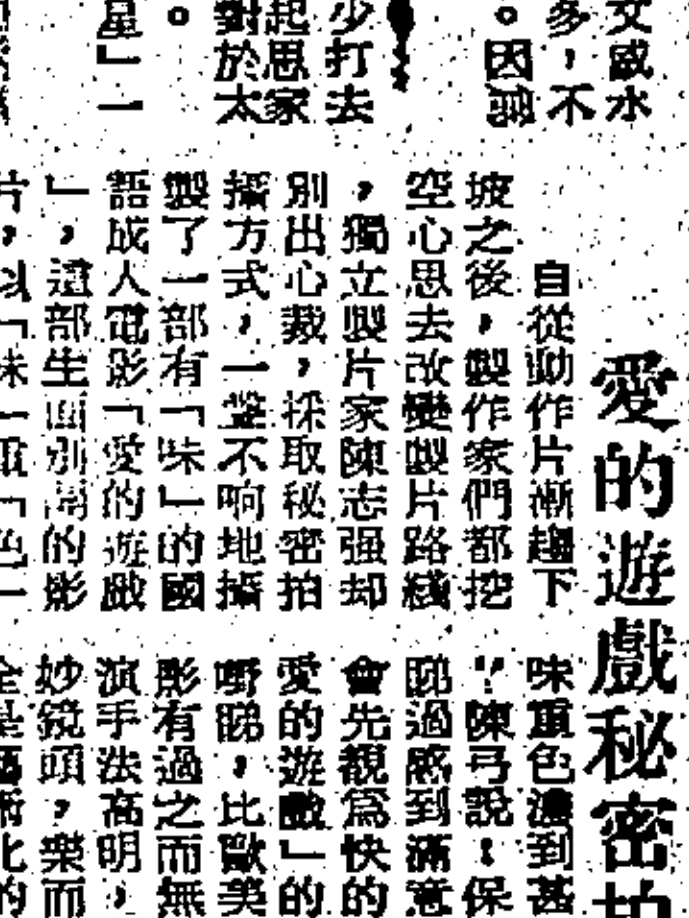 愛的遊戲秘密拍
文威水
多，不
。因
少打去
起思家
對於太
。
星」一
自從動作片漸趨下
坡之後，製作家們都挖
空心思去改變製片路綫
，獨立製片家陳志强却
別出心裁，採取秘密拍
攝方式，一聲不响地攝
製了一部有「味」的國
語成人電影「愛的遊戲
」，這部生面別開的影
片，以「味
味重色濃到甚
？陳弓說：保
睇過感到滿意
會先覩爲快的
愛的遊戲」的
嘢睇，比歐美
影有過之而無
演手法高明，
妙鏡頭，樂而
全是藝術化的